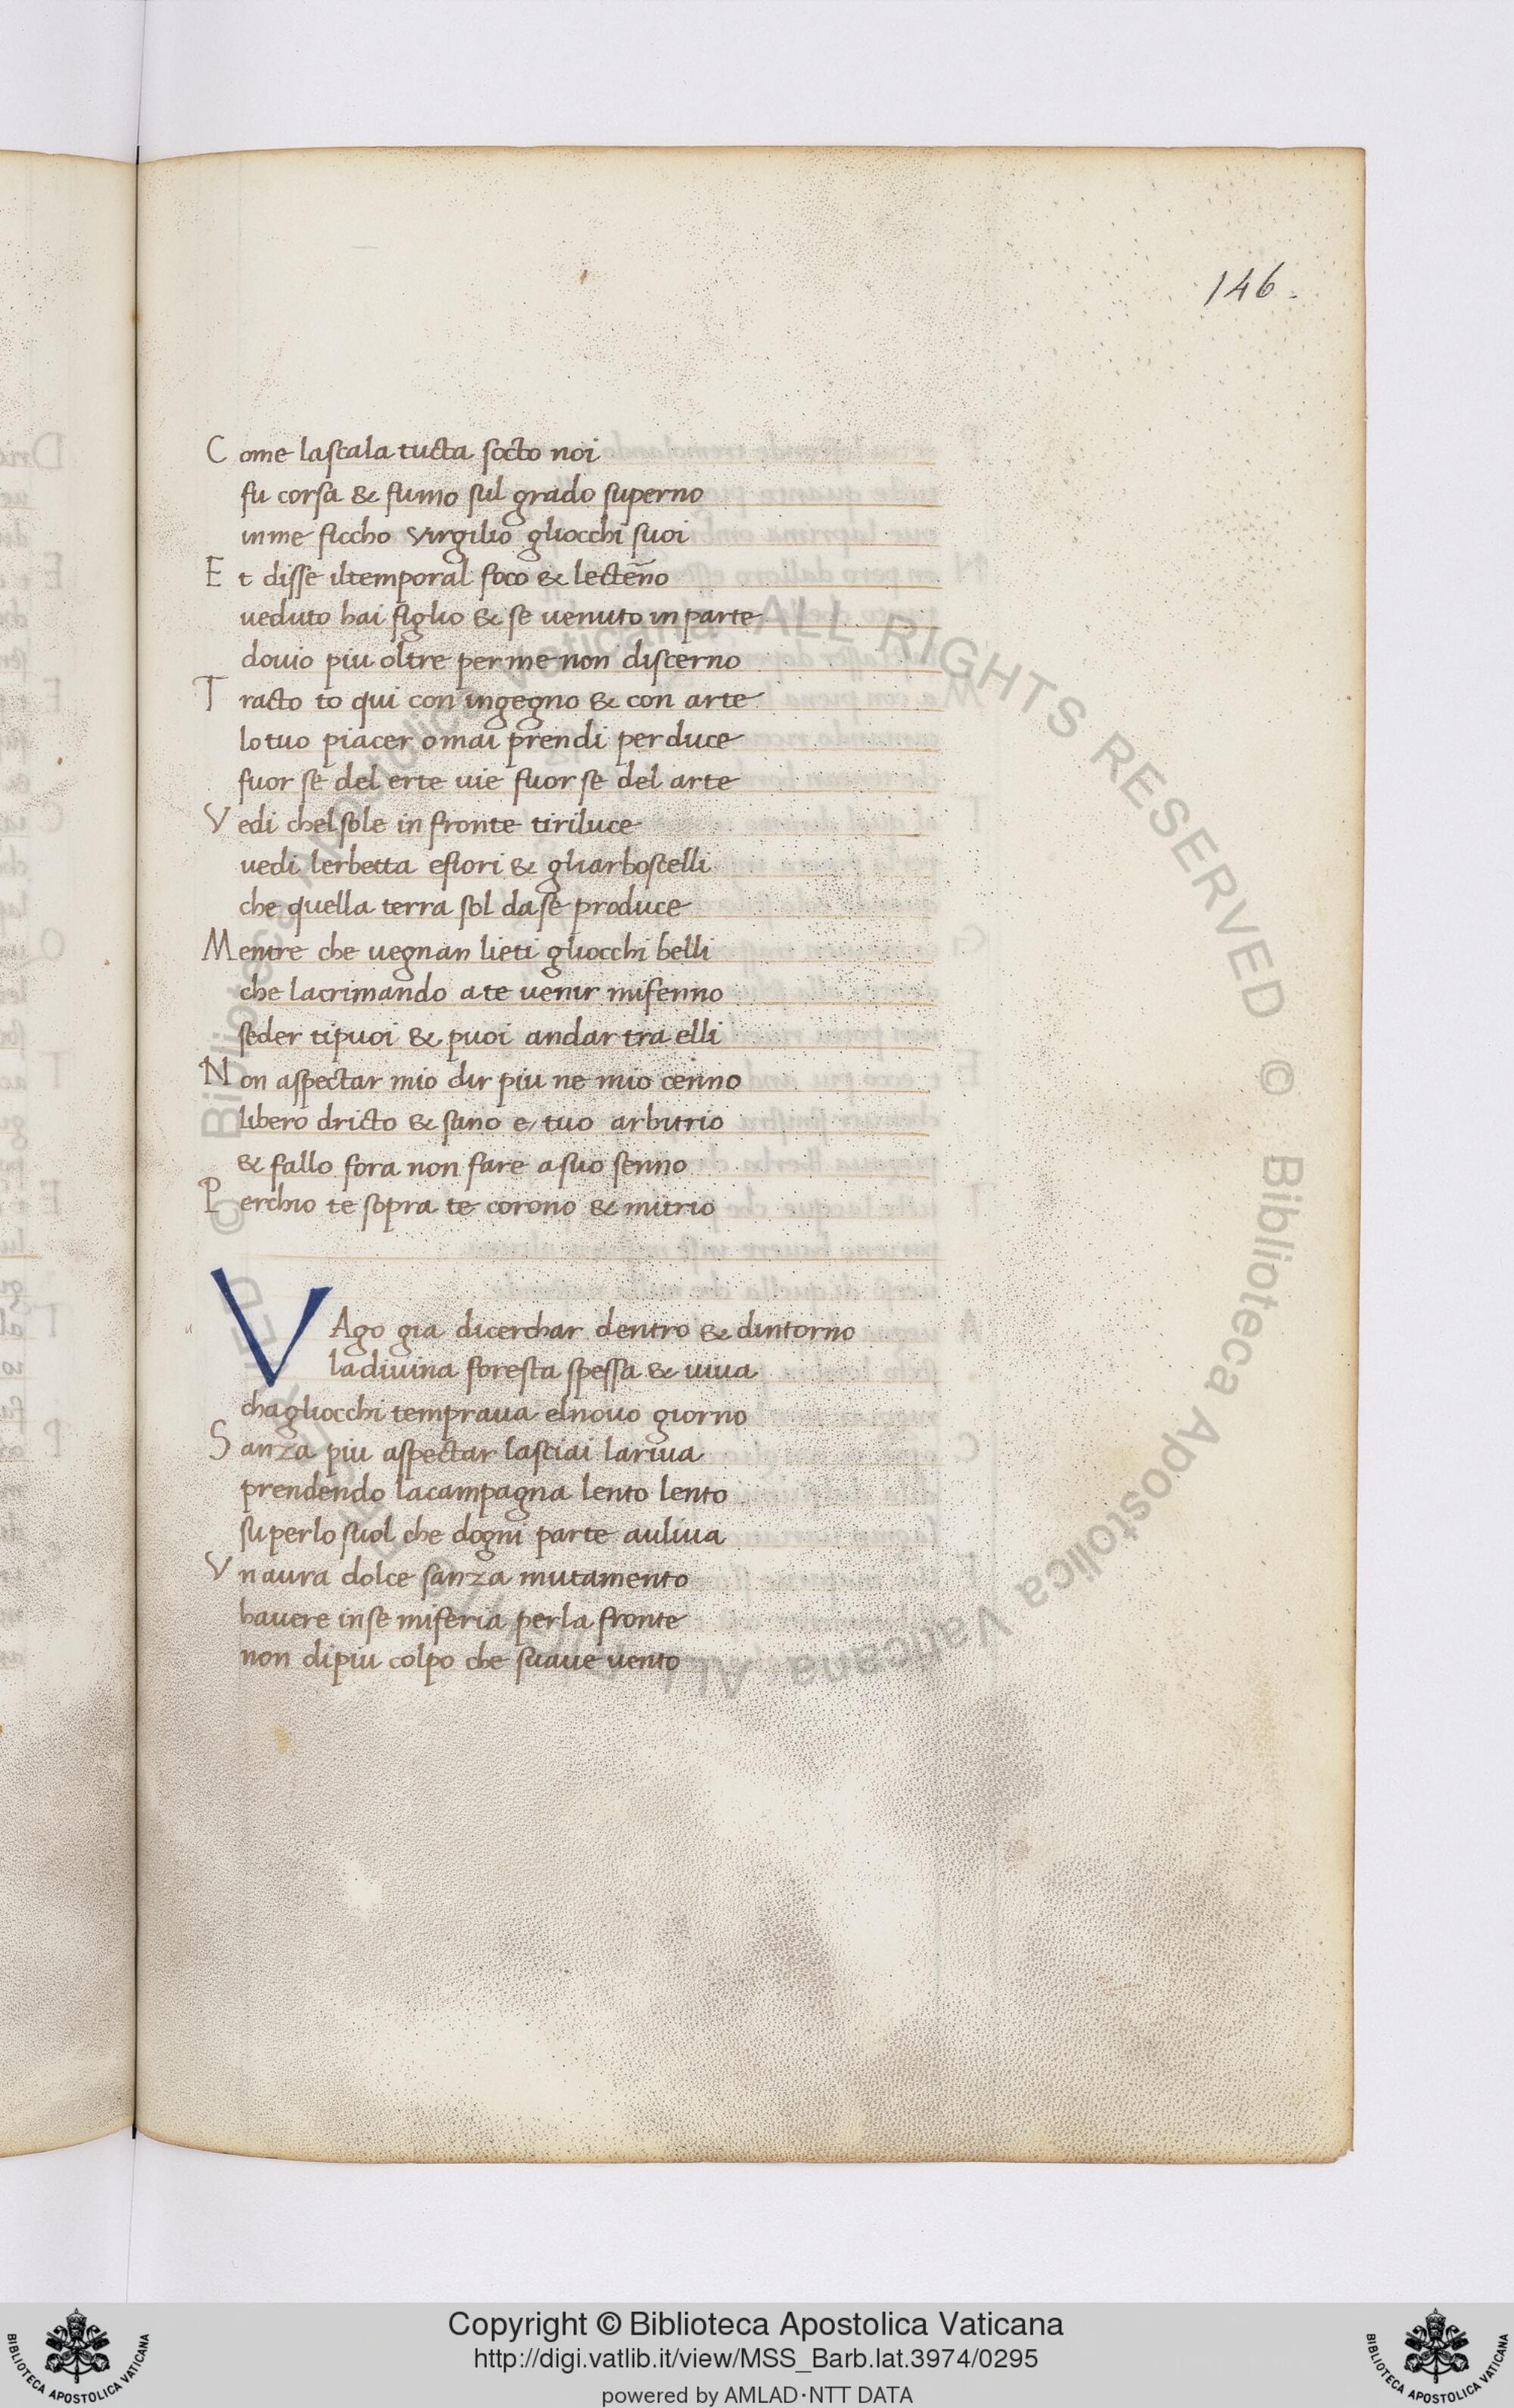 146.
Come lascala tucta socto noi
fu corsa & fumo sul grado superno
inme ficcho Virgilio gliocchi suoi
Et disse iltemporal foco & lecteñno
ueduto hai figlio & se uenuto in parte
douio piu oltre per me non discerno
Tracto to qui con ingegno & con arte
lo tuo piacer omai prendi per duce
fuor se del erte uie fuor se del arte
Vedi chel sole in fronte tiriluce
uedi lerbetta efiori & gliarboscelli
che quella terra sol da se produce
Mentre che uegnan lieti gliocchi belli
che lacrimando a te uenir mifenno
seder tipuoi & puoi andar tra elli
Non aspectar mio dir piu ne mio cenno
libero dricto & sano e tuo arbitrio
& fallo fora non fare a suo senno
Perchio te sopra te corono & mitrio
VAgo gia dicerchar dentro & dintorno
ladiuina foresta spessa & uiua
chagliocchi tempraua elnouo giorno
Sanza piu aspectar lasciai lariua
prendendo lacampagna lento lento
su perlo suol che dogni parte auliua
Vnaura dolce sanza mutamento
hauere inse miferia perla fronte
non dipiu colpo che suaue uento
© Biblioteca Apostolica Vaticana ALL RIGHTS RESERVED
© Biblioteca Apostolica Vaticana ALL RIGHTS RESERVED
Copyright © Biblioteca Apostolica Vaticana
http://digi.vatlib.it/view/MSS_Barb.lat.3974/0295
powered by AMLAD·NTT DATA
BIBLIOTECA APOSTOLICA VATICANA
BIBLIOTECA APOSTOLICA VATICANA